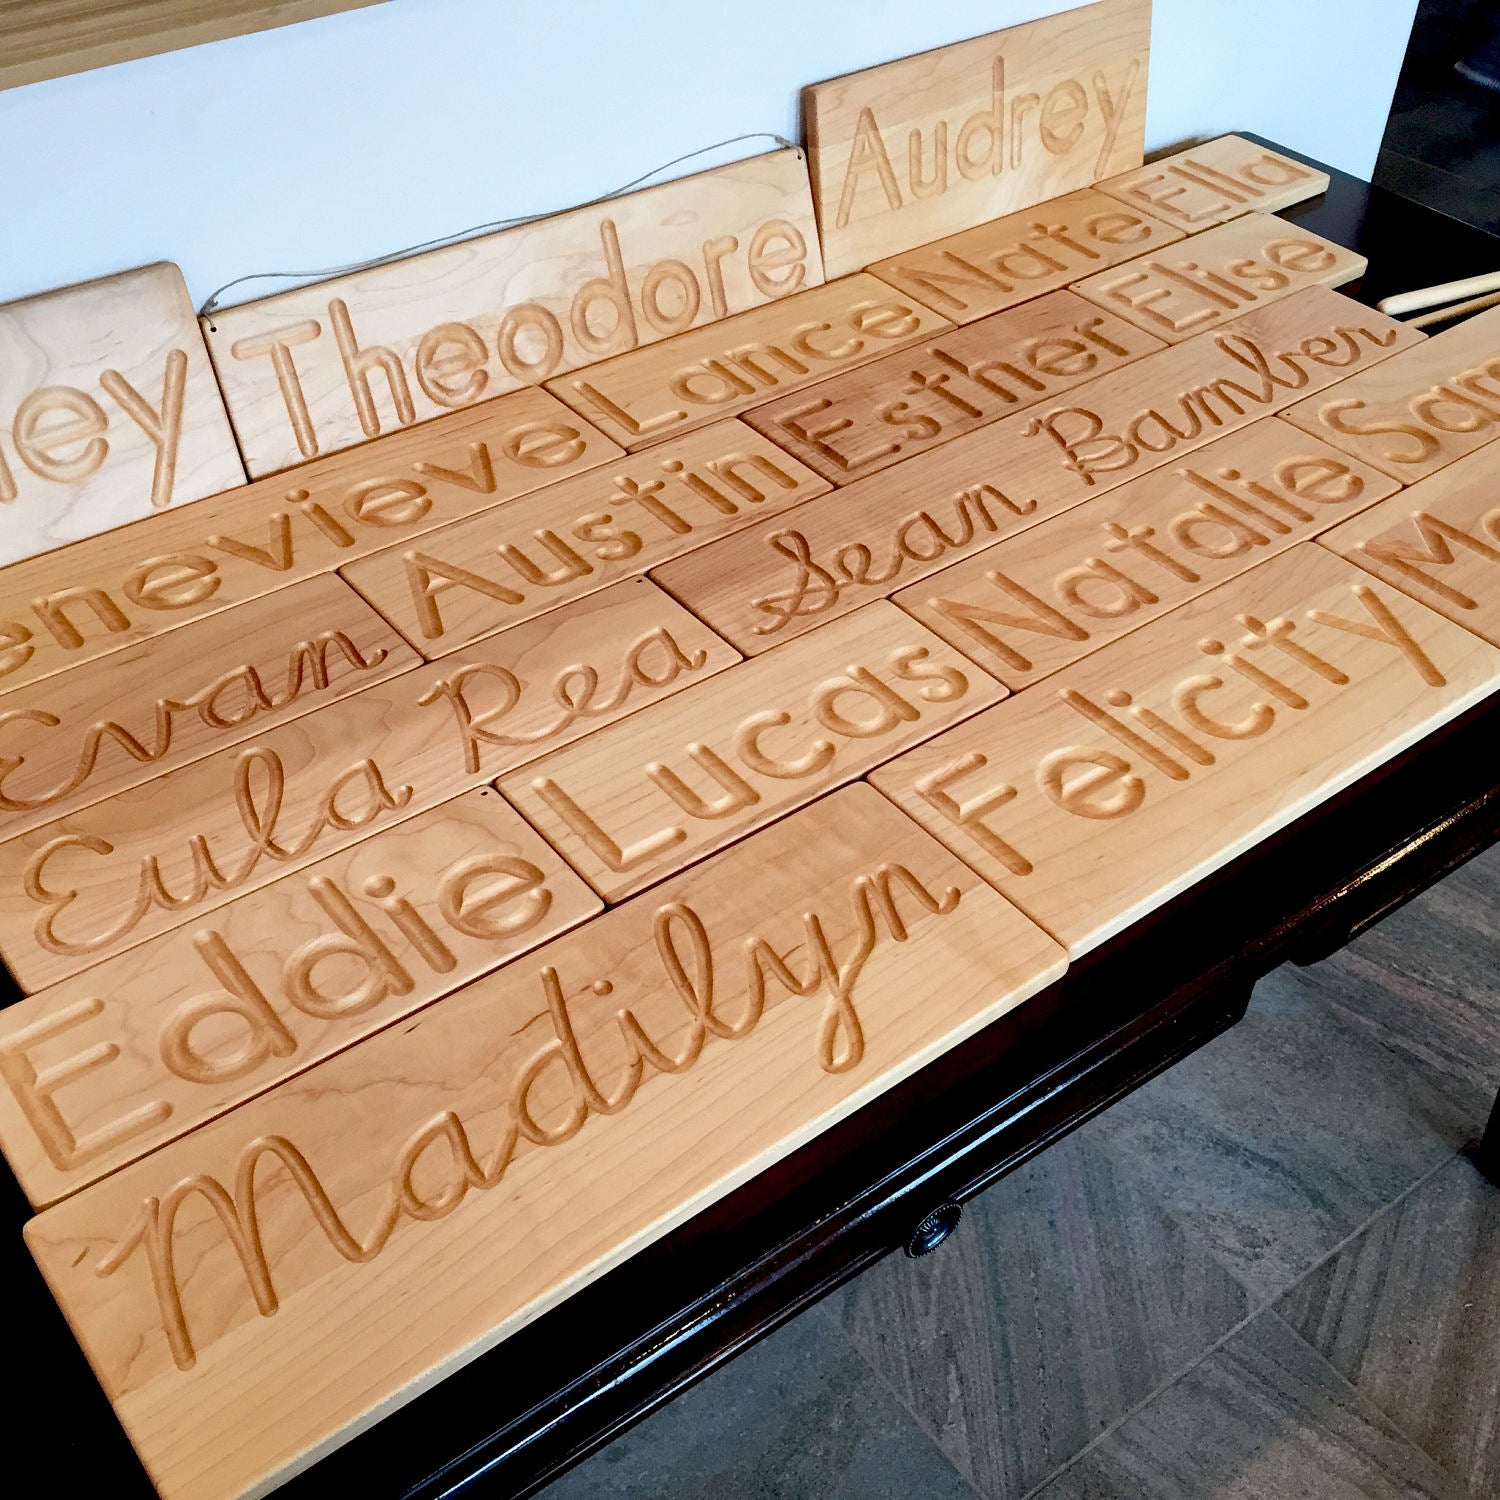 Audrey
Theodore
ey
Ella
Nate
Lance
enevieve
Elise
Esther
Austin
Evan
Sean Bamber
Eula Rea
Sam
Natalie
Lucas
Eddie
Felicity
Madilyn